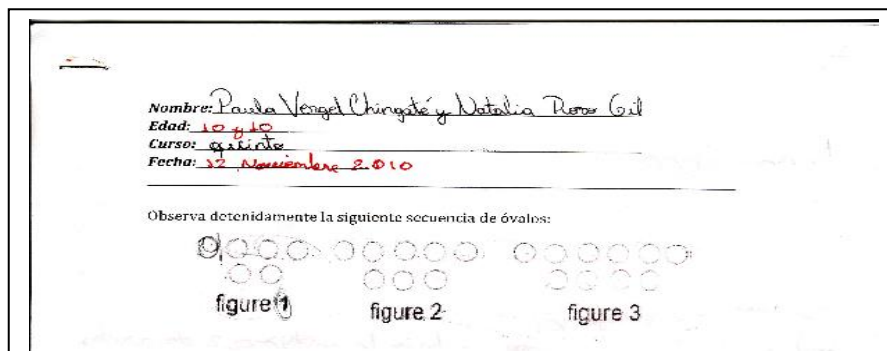 Nombre: Paula Vergel Chingaté y Natalia Rozo Gil
Edad: 10 y 10
Curso: quinto
Fecha: 12 Noviembre 2.010
Observa detenidamente la siguiente secuencia de óvalos:
figure 1 figure 2 figure 3